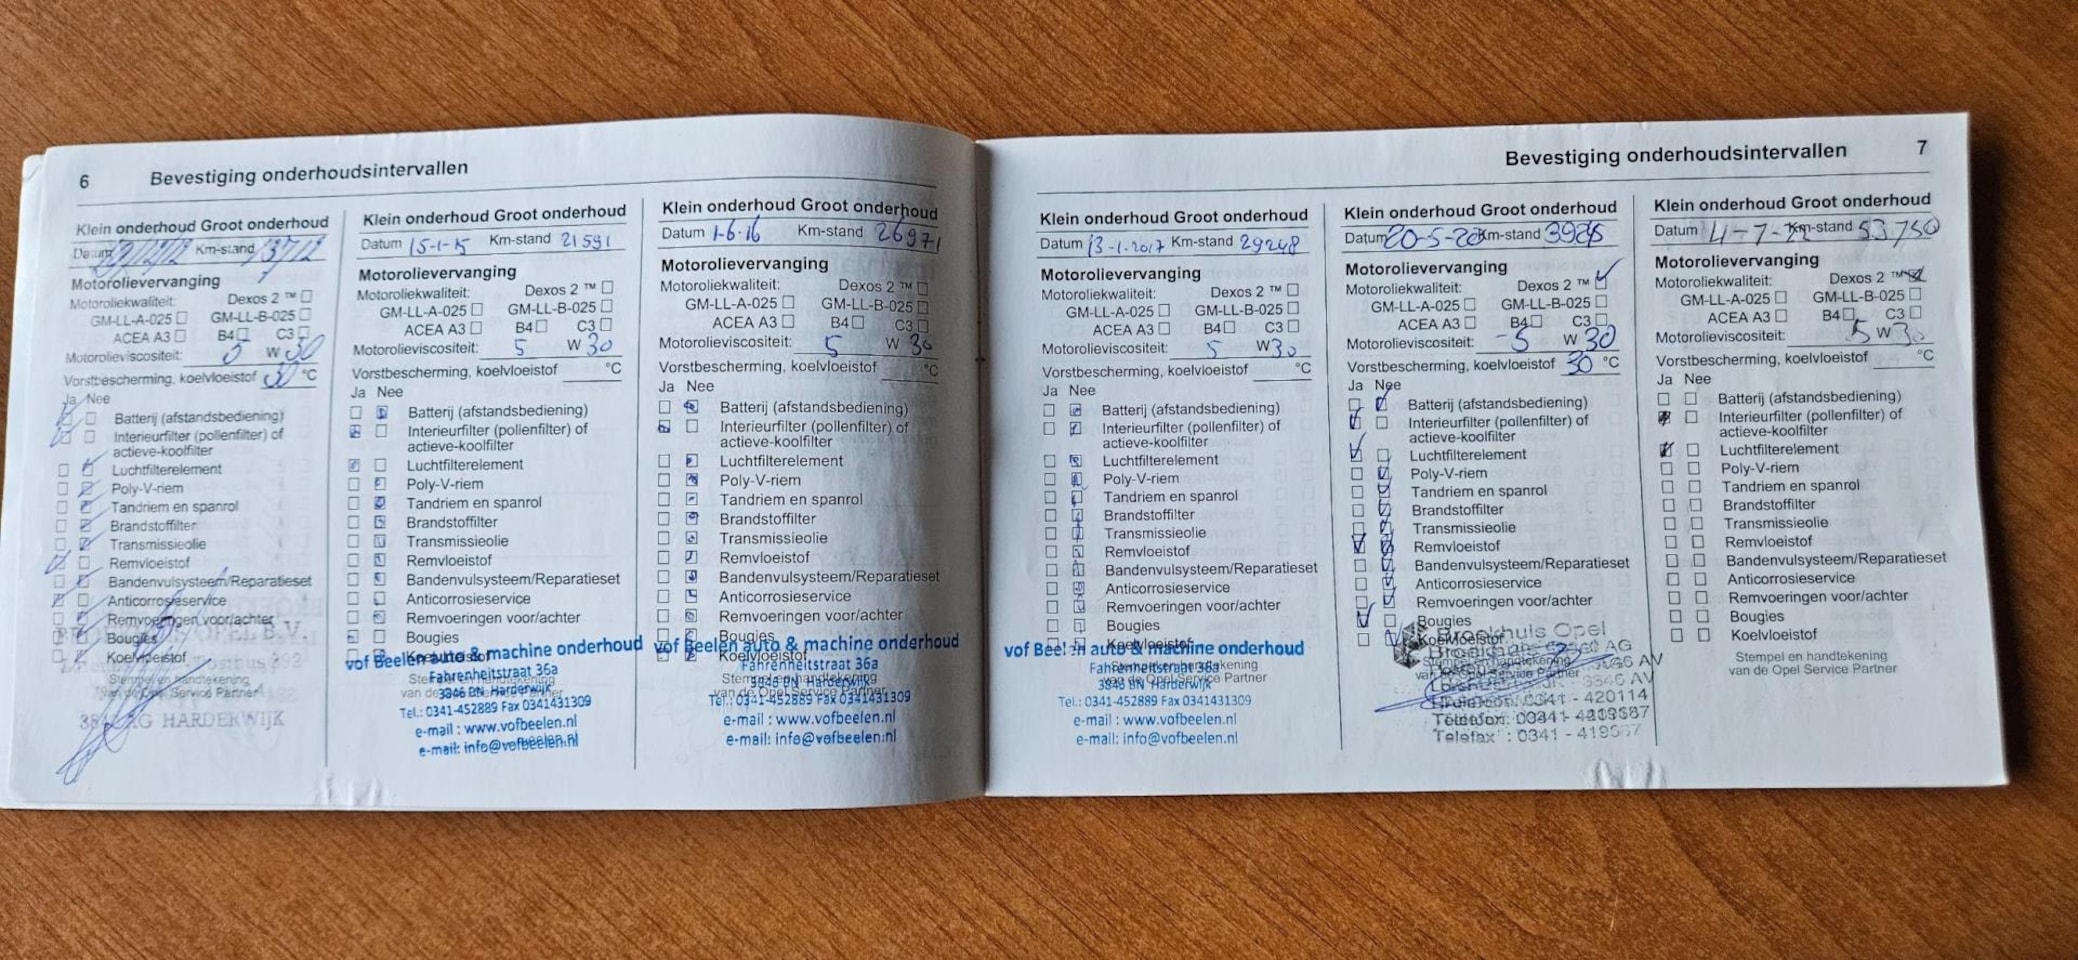 6 Bevestiging onderhoudsintervallen
Klein onderhoud Groot onderhoud
Datum Km-stand
Motorolievervanging
Motoroliekwaliteit: Dexos 2 ™
GM-LL-A-025 GM-LL-B-025
ACEA A3 B4 C3
Motorolieviscositeit: 5 W 30
Vorstbescherming, koelvloeistof 30 °C
Ja Nee
Batterij (afstandsbediening)
Interieurfilter (pollenfilter) of
actieve-koolfilter
Luchtfilterelement
Poly-V-riem
Tandriem en spanrol
Brandstoffilter
Transmissieolie
Remvloeistof
Bandenvulsysteem/Reparatieset
Anticorrosieservice
Remvoeringen voor/achter
Bougies
Koelvloeistof
Stempel en handtekening
van de Opel Service Partner
HARDERWIJK
Klein onderhoud Groot onderhoud
Datum 15-1-15 Km-stand 21591
Motorolievervanging
Motoroliekwaliteit: Dexos 2 ™
GM-LL-A-025 GM-LL-B-025
ACEA A3 B4 C3
Motorolieviscositeit: 5 W 30
Vorstbescherming, koelvloeistof °C
Ja Nee
Batterij (afstandsbediening)
Interieurfilter (pollenfilter) of
actieve-koolfilter
Luchtfilterelement
Poly-V-riem
Tandriem en spanrol
Brandstoffilter
Transmissieolie
Remvloeistof
Bandenvulsysteem/Reparatieset
Anticorrosieservice
Remvoeringen voor/achter
Bougies
Koelvloeistof
vof Beelen auto & machine onderhoud
Fahrenheitstraat 36a
3846 BN Harderwijk
Tel.: 0341-452889 Fax 0341431309
e-mail : www.vofbeelen.nl
e-mail: info@vofbeelen.nl
Klein onderhoud Groot onderhoud
Datum 1-6-16 Km-stand 26971
Motorolievervanging
Motoroliekwaliteit: Dexos 2 ™
GM-LL-A-025 GM-LL-B-025
ACEA A3 B4 C3
Motorolieviscositeit: 5 W 30
Vorstbescherming, koelvloeistof °C
Ja Nee
Batterij (afstandsbediening)
Interieurfilter (pollenfilter) of
actieve-koolfilter
Luchtfilterelement
Poly-V-riem
Tandriem en spanrol
Brandstoffilter
Transmissieolie
Remvloeistof
Bandenvulsysteem/Reparatieset
Anticorrosieservice
Remvoeringen voor/achter
Bougies
Koelvloeistof
vof Beelen auto & machine onderhoud
Fahrenheitstraat 36a
3846 BN Harderwijk
van de Opel Service Partner
Tel.: 0341-452889 Fax 0341431309
e-mail : www.vofbeelen.nl
e-mail: info@vofbeelen.nl
Bevestiging onderhoudsintervallen 7
Klein onderhoud Groot onderhoud
Datum 13-1-2017 Km-stand 29248
Motorolievervanging
Motoroliekwaliteit: Dexos 2 ™
GM-LL-A-025 GM-LL-B-025
ACEA A3 B4 C3
Motorolieviscositeit: 5 W 30
Vorstbescherming, koelvloeistof °C
Ja Nee
Batterij (afstandsbediening)
Interieurfilter (pollenfilter) of
actieve-koolfilter
Luchtfilterelement
Poly-V-riem
Tandriem en spanrol
Brandstoffilter
Transmissieolie
Remvloeistof
Bandenvulsysteem/Reparatieset
Anticorrosieservice
Remvoeringen voor/achter
Bougies
Koelvloeistof
vof Beelen auto & machine onderhoud
Fahrenheitstraat 36a
Stempel en handtekening
3846 BN Harderwijk
van de Opel Service Partner
Tel.: 0341-452889 Fax 0341431309
e-mail : www.vofbeelen.nl
e-mail: info@vofbeelen.nl
Klein onderhoud Groot onderhoud
Datum 20-5-20 Km-stand
Motorolievervanging
Motoroliekwaliteit: Dexos 2 ™
GM-LL-A-025 GM-LL-B-025
ACEA A3 B4 C3
Motorolieviscositeit: 5 W 30
Vorstbescherming, koelvloeistof 30 °C
Ja Nee
Batterij (afstandsbediening)
Interieurfilter (pollenfilter) of
actieve-koolfilter
Luchtfilterelement
Poly-V-riem
Tandriem en spanrol
Brandstoffilter
Transmissieolie
Remvloeistof
Bandenvulsysteem/Reparatieset
Anticorrosieservice
Remvoeringen voor/achter
Bougies
Koelvloeistof
Broekhuis Opel
Stempel en handtekening
van de Opel Service Partner
0341 - 420114
Telefax : 0341 - 419587
Klein onderhoud Groot onderhoud
Datum 4-7-22 Km-stand 53750
Motorolievervanging
Motoroliekwaliteit: Dexos 2 ™
GM-LL-A-025 GM-LL-B-025
ACEA A3 B4 C3
Motorolieviscositeit: 5 W 30
Vorstbescherming, koelvloeistof °C
Ja Nee
Batterij (afstandsbediening)
Interieurfilter (pollenfilter) of
actieve-koolfilter
Luchtfilterelement
Poly-V-riem
Tandriem en spanrol
Brandstoffilter
Transmissieolie
Remvloeistof
Bandenvulsysteem/Reparatieset
Anticorrosieservice
Remvoeringen voor/achter
Bougies
Koelvloeistof
Stempel en handtekening
van de Opel Service Partner